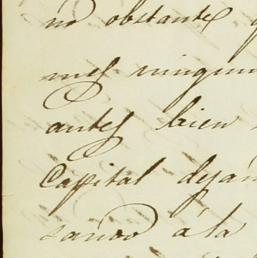 no obstante q
mes ningun
antes bien
Capital deján
á la